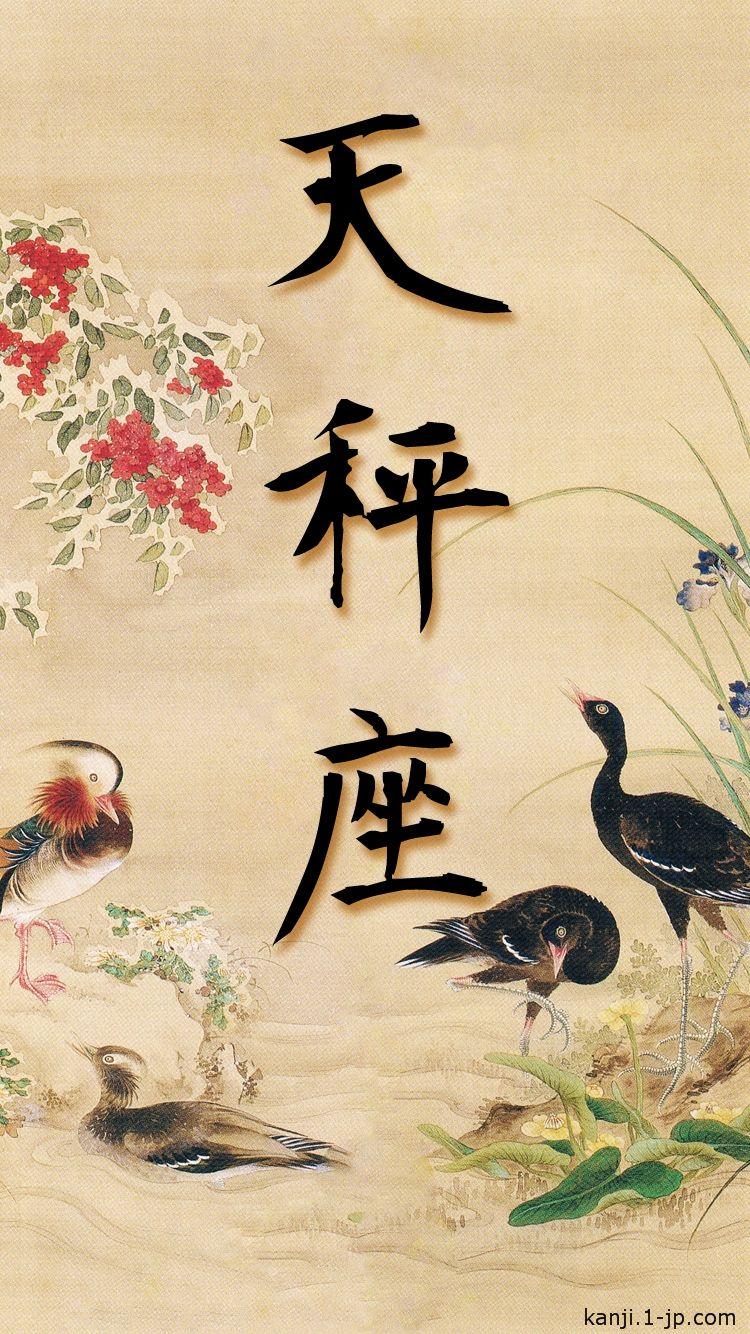 天秤座
kanji.1-jp.com